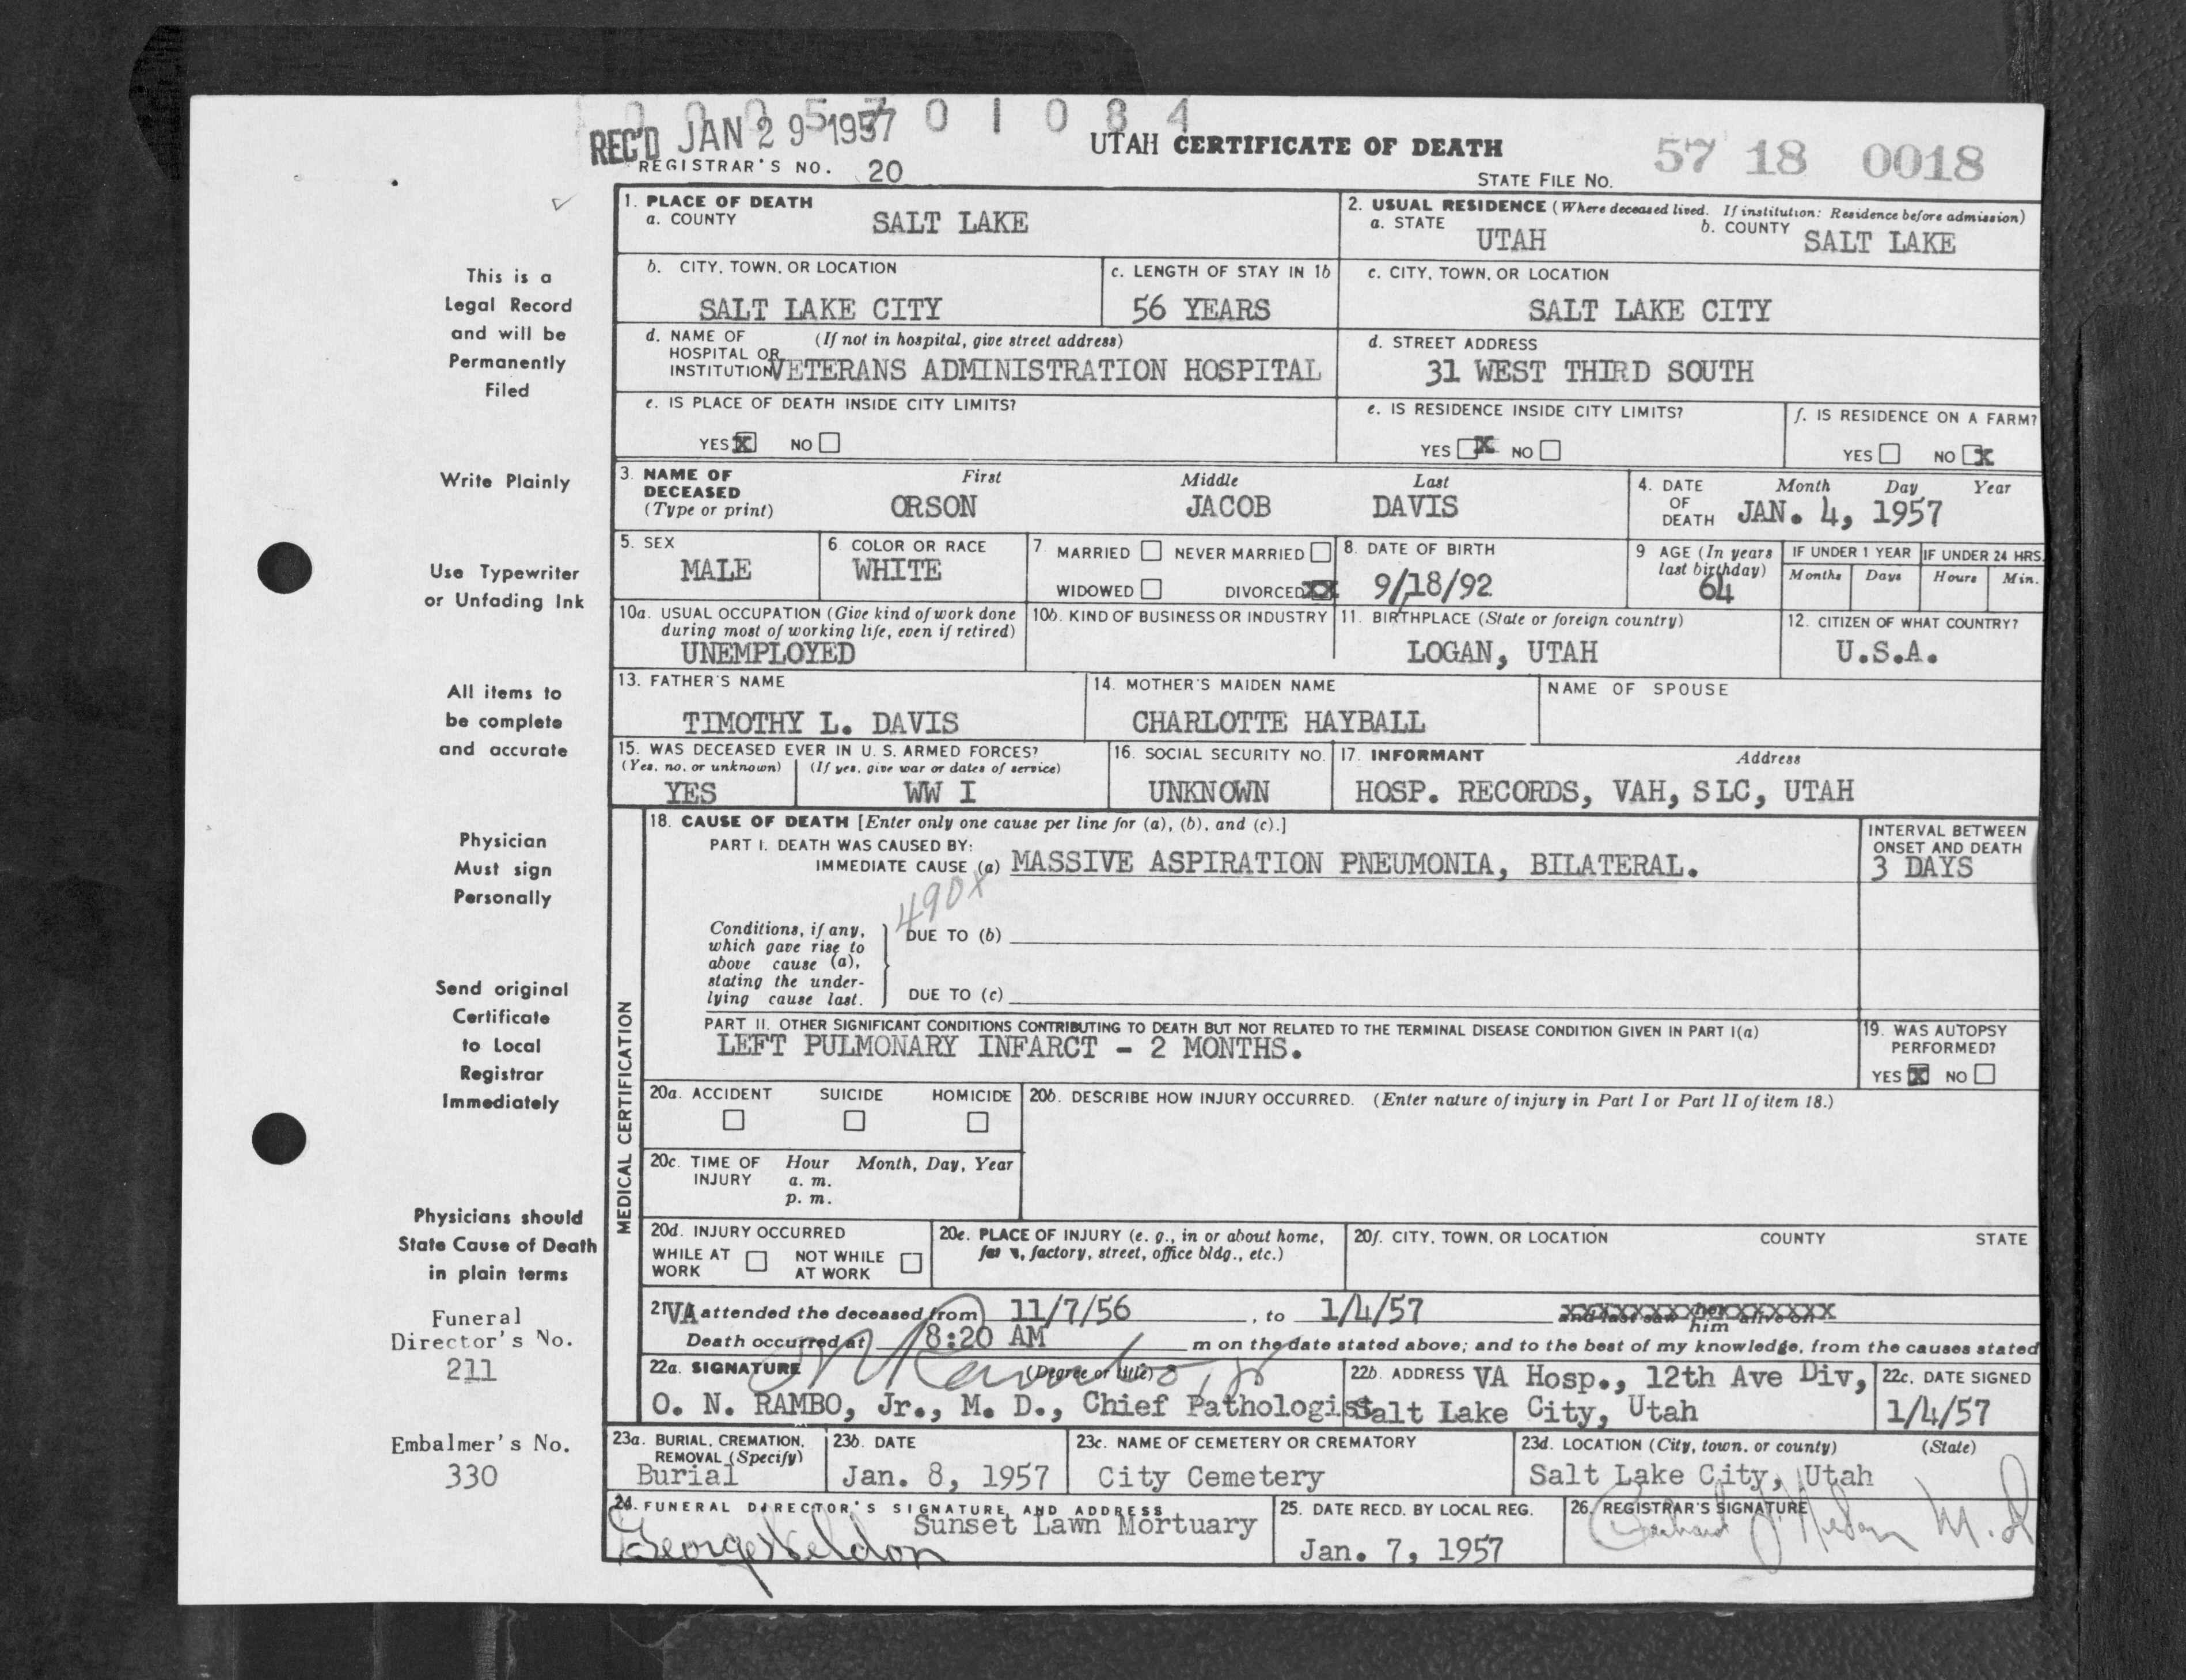 REC'D JAN 29 1957
0 1 0 8 4
UTAH CERTIFICATE OF DEATH
REGISTRAR'S NO. 20
STATE FILE NO. 57 18 0018
1. PLACE OF DEATH
a. COUNTY SALT LAKE
2. USUAL RESIDENCE (Where deceased lived. If institution: Residence before admission)
a. STATE UTAH b. COUNTY SALT LAKE
b. CITY, TOWN, OR LOCATION SALT LAKE CITY
c. LENGTH OF STAY IN 1b 56 YEARS
c. CITY, TOWN, OR LOCATION SALT LAKE CITY
d. NAME OF HOSPITAL OR INSTITUTION (If not in hospital, give street address) VETERANS ADMINISTRATION HOSPITAL
d. STREET ADDRESS 31 WEST THIRD SOUTH
e. IS PLACE OF DEATH INSIDE CITY LIMITS?
YES X NO
e. IS RESIDENCE INSIDE CITY LIMITS?
YES X NO
f. IS RESIDENCE ON A FARM?
YES NO X
3. NAME OF DECEASED (Type or print)
First Middle Last
ORSON JACOB DAVIS
4. DATE OF DEATH Month Day Year
JAN. 4, 1957
5. SEX MALE
6. COLOR OR RACE WHITE
7. MARRIED NEVER MARRIED
WIDOWED DIVORCED X
8. DATE OF BIRTH 9/18/92
9 AGE (In years last birthday) 64
IF UNDER 1 YEAR Months Days
IF UNDER 24 HRS. Hours Min.
10a. USUAL OCCUPATION (Give kind of work done during most of working life, even if retired)
UNEMPLOYED
10b. KIND OF BUSINESS OR INDUSTRY
11. BIRTHPLACE (State or foreign country)
LOGAN, UTAH
12. CITIZEN OF WHAT COUNTRY?
U.S.A.
13. FATHER'S NAME
TIMOTHY L. DAVIS
14. MOTHER'S MAIDEN NAME
CHARLOTTE HAYBALL
NAME OF SPOUSE
15. WAS DECEASED EVER IN U. S. ARMED FORCES?
(Yes, no, or unknown) (If yes, give war or dates of service)
YES WW I
16. SOCIAL SECURITY NO.
UNKNOWN
17. INFORMANT Address
HOSP. RECORDS, VAH, SLC, UTAH
MEDICAL CERTIFICATION
18. CAUSE OF DEATH [Enter only one cause per line for (a), (b), and (c).]
PART I. DEATH WAS CAUSED BY:
IMMEDIATE CAUSE (a) MASSIVE ASPIRATION PNEUMONIA, BILATERAL.
INTERVAL BETWEEN ONSET AND DEATH
3 DAYS
490X
Conditions, if any, which gave rise to above cause (a), stating the underlying cause last.
DUE TO (b)
DUE TO (c)
PART II. OTHER SIGNIFICANT CONDITIONS CONTRIBUTING TO DEATH BUT NOT RELATED TO THE TERMINAL DISEASE CONDITION GIVEN IN PART I(a)
LEFT PULMONARY INFARCT - 2 MONTHS.
19. WAS AUTOPSY PERFORMED?
YES X NO
20a. ACCIDENT SUICIDE HOMICIDE
20b. DESCRIBE HOW INJURY OCCURRED. (Enter nature of injury in Part I or Part II of item 18.)
20c. TIME OF INJURY Hour Month, Day, Year
a. m.
p. m.
20d. INJURY OCCURRED
WHILE AT WORK NOT WHILE AT WORK
20e. PLACE OF INJURY (e. g., in or about home, farm, factory, street, office bldg., etc.)
20f. CITY, TOWN, OR LOCATION COUNTY STATE
21. VA attended the deceased from 11/7/56, to 1/4/57 and last saw her him alive on
Death occurred at 8:20 AM m on the date stated above; and to the best of my knowledge, from the causes stated
22a. SIGNATURE (Degree or title)
O N Rambo, Jr
O. N. RAMBO, Jr., M. D., Chief Pathologist
22b. ADDRESS VA Hosp., 12th Ave Div,
Salt Lake City, Utah
22c. DATE SIGNED
1/4/57
23a. BURIAL, CREMATION, REMOVAL (Specify)
Burial
23b. DATE
Jan. 8, 1957
23c. NAME OF CEMETERY OR CREMATORY
City Cemetery
23d. LOCATION (City, town, or county) (State)
Salt Lake City, Utah
24. FUNERAL DIRECTOR'S SIGNATURE AND ADDRESS
Sunset Lawn Mortuary
George Weldon
25. DATE RECD. BY LOCAL REG.
Jan. 7, 1957
26. REGISTRAR'S SIGNATURE
M.D
This is a
Legal Record
and will be
Permanently
Filed
Write Plainly
Use Typewriter
or Unfading Ink
All items to
be complete
and accurate
Physician
Must sign
Personally
Send original
Certificate
to Local
Registrar
Immediately
Physicians should
State Cause of Death
in plain terms
Funeral
Director's No.
211
Embalmer's No.
330